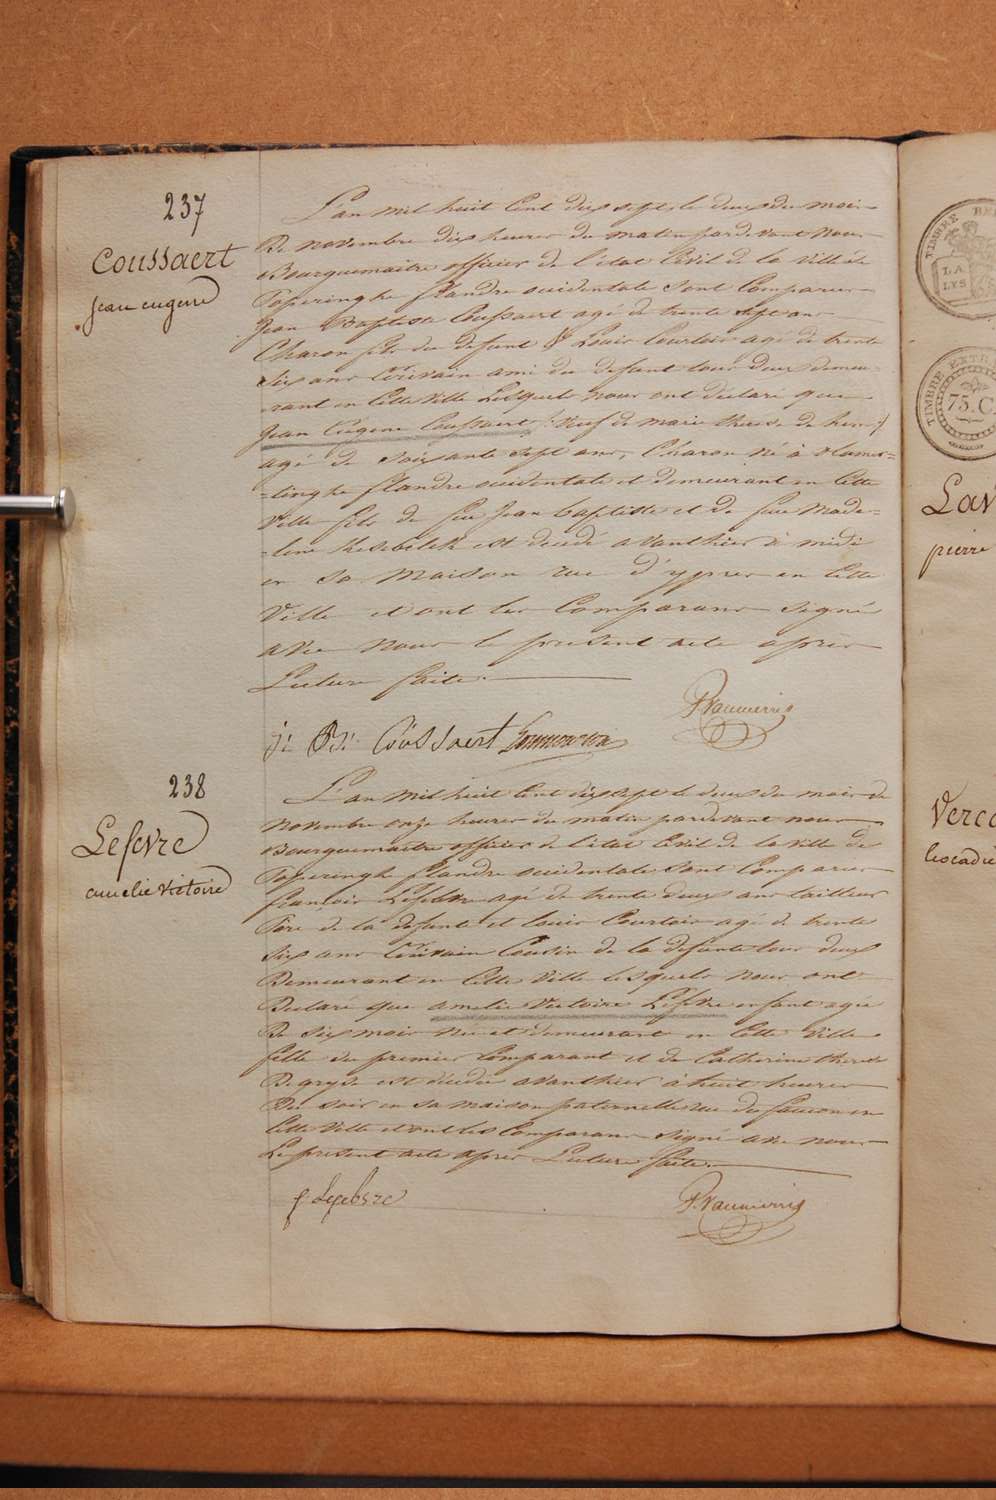 237
Coussaert
jean eugene
L'an mil huit Cent dix sept le deux du mois
De novembre dix heures du matin pardevant nous
Bourguemaitre officier de l'état Civil de la ville de
Poperinghe flandre occidentale sont Comparus
Jean Baptiste Coussaert agé de trente sept ans
Charon fils du defunt & Louis Courtois agé de trente
six ans Ecrivain ami du defunt tous deux demeu-
-rant en Cette ville Lesquels nous ont déclaré que
Jean Eugene Coussaert veuf de marie therese de
agé de soixante sept ans, Charon né à vlamer-
-tinghe flandre occidentale et demeurant en Cette
Ville fils de feu Jean baptiste et de feue Made-
-leine est decedé avanthier à midi
en sa maison rue d'ypres en Cette
Ville et ont les Comparans signé
avec nous le present acte après
Lecture faite.
j: B: Coussaert
238
Lefevre
amelie victoire
L'an mil huit Cent dix sept le deux du mois de
novembre onze heures du matin pardevant nous
Bourguemaitre officier de l'état Civil de la ville de
Poperinghe flandre occidentale sont Comparus
françois Lefebvre agé de trente deux ans tailleur
Père de la defunte et louis Courtois agé de trente
six ans Ecrivain Cousin de la defunte tous deux
Demeurant en Cette ville lesquels nous ont
Declaré que amelie Victoire Lefevre enfant agée
De six mois née et demeurant en Cette Ville
fille du premier Comparant et de Catherine therese
Degryse est décédée avanthier à huit heures
Du soir en sa maison paternelle rue du faucon en
Cette Ville et ont les Comparans signé avec nous
Le present acte après Lecture faite.
f Lefebvre
TIMBRE
LA
LYS
TIMBRE EXTRA
75.C.
Lav
pierre
Verco
leocadie